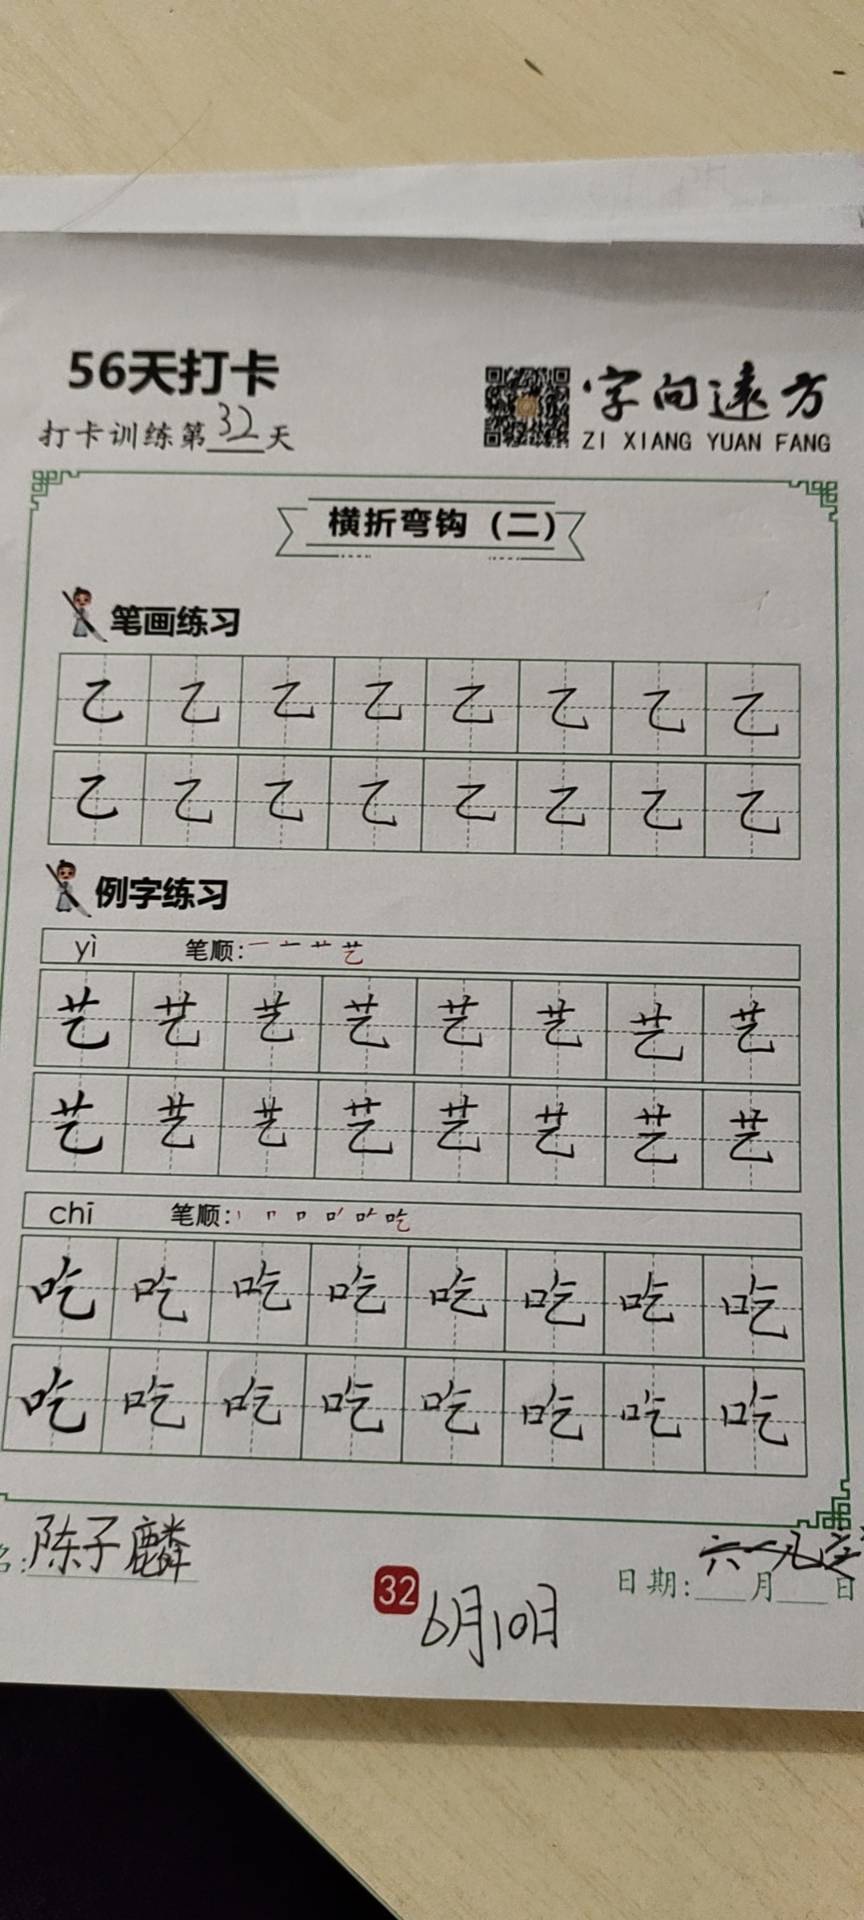 56天打卡
字向远方
打卡训练第32天
ZI XIANG YUAN FANG
横折弯钩（二）
笔画练习
乙乙乙乙乙乙乙乙
乙乙乙乙乙乙乙乙
例字练习
yì 笔顺：一 艹 艺
艺艺艺艺艺艺艺艺
艺艺艺艺艺艺艺艺
chī 笔顺：丨 口 吃
吃吃吃吃吃吃吃吃
吃吃吃吃吃吃吃吃
名：陈子麟
日期：___月___日
32
6月10日